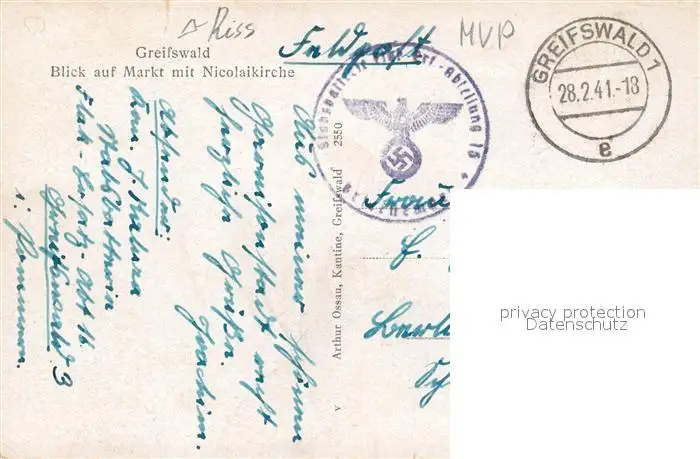 Riss
MVP
Feldpost
Greifswald
Blick auf Markt mit Nicolaikirche
GREIFSWALD 1
28.2.41.-18
e
Stabsbatterie Abteilung 16
Aus meiner schönen
Garnisonstadt
herzliche Grüße
Joachim.
Absender:
Kan. J.
Stabsbatterie
Flak-Ersatz-Abt 16
Greifswald 3
i. Pommern.
Arthur Ossau, Kantine, Greifswald 2550
v
Frau
privacy protection
Datenschutz